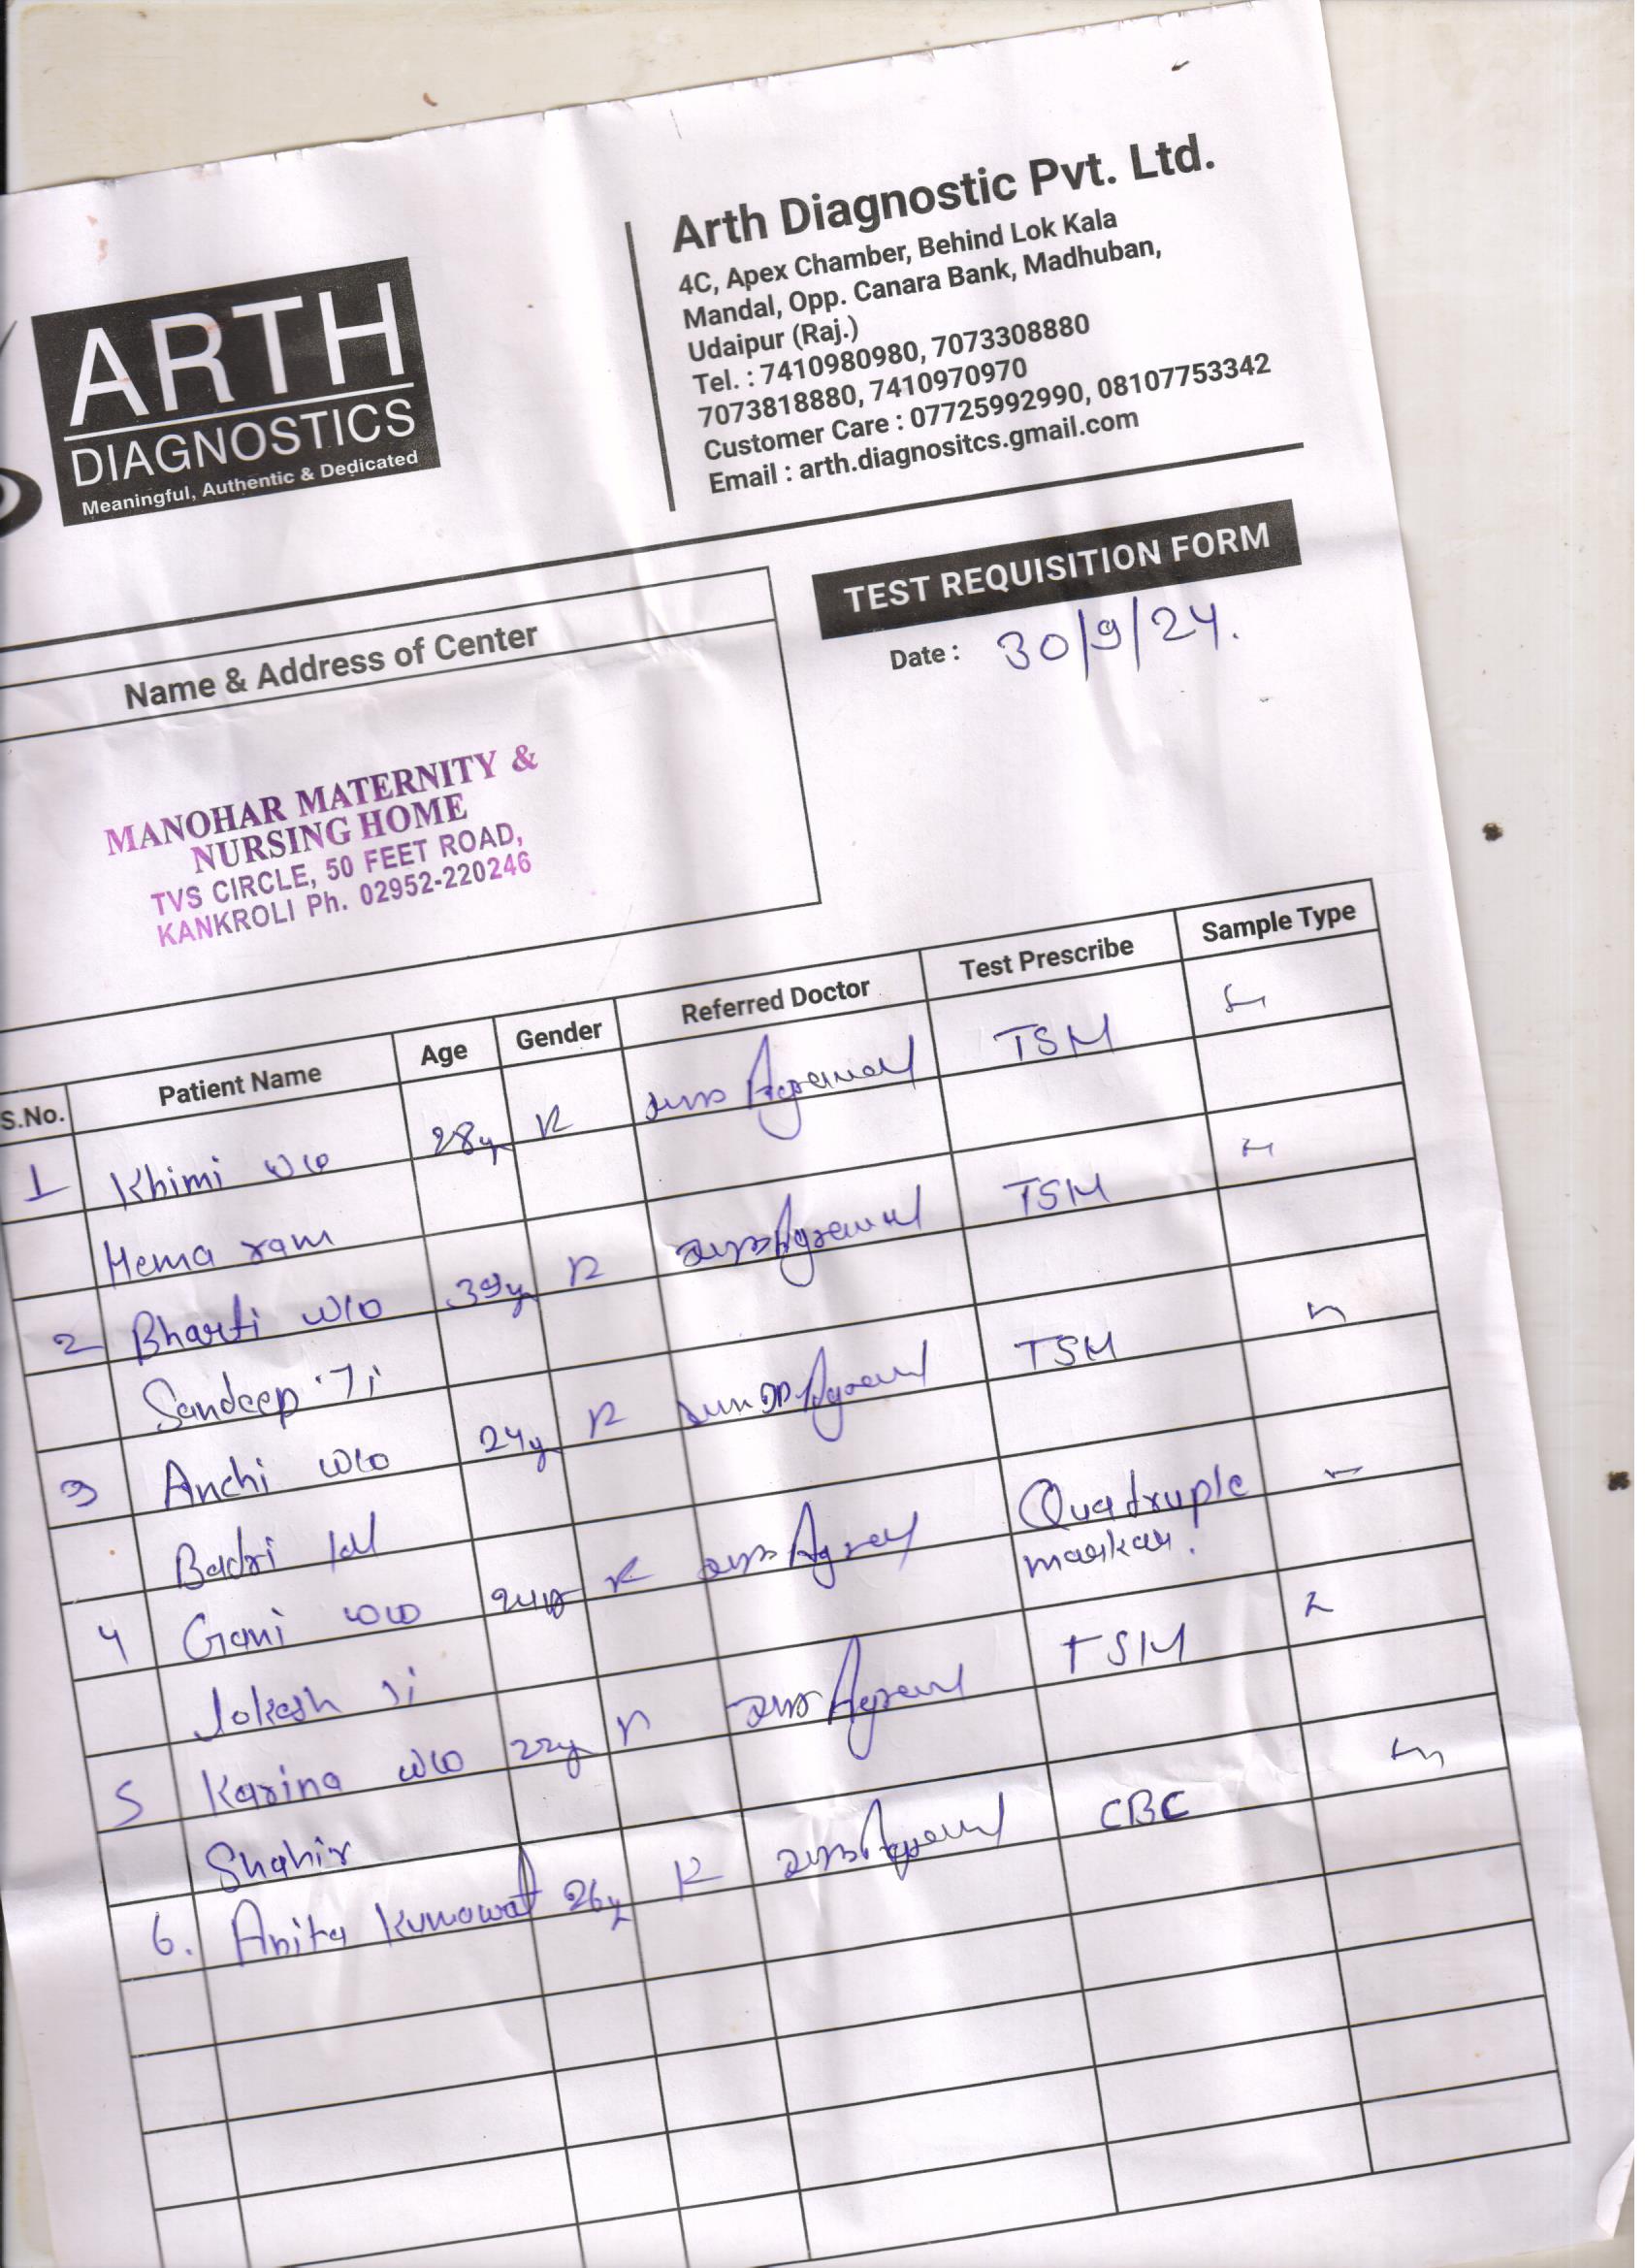 ARTH
DIAGNOSTICS
Meaningful, Authentic & Dedicated
Arth Diagnostic Pvt. Ltd.
4C, Apex Chamber, Behind Lok Kala
Mandal, Opp. Canara Bank, Madhuban,
Udaipur (Raj.)
Tel. : 7410980980, 7073308880
7073818880, 7410970970
Customer Care : 07725992990, 08107753342
Email : arth.diagnositcs.gmail.com
TEST REQUISITION FORM
Date : 30/9/24.
Name & Address of Center
MANOHAR MATERNITY &
NURSING HOME
TVS CIRCLE, 50 FEET ROAD,
KANKROLI Ph. 02952-220246
S.No. Patient Name Age Gender Referred Doctor Test Prescribe Sample Type
1 Khimi w/o 28y Agrawal TSM
Hema ram
2 Bharti w/o 39y Agrawal TSM
Sandeep Ji
3 Anchi w/o 24y Agrawal TSM
Badri lal
4 Gani w/o Agrawal Quadruple
markar.
lokesh Ji
5 Karina w/o 22y Agrawal TSM
Shahir
6. Anita Kumawat 26y Agrawal CBC